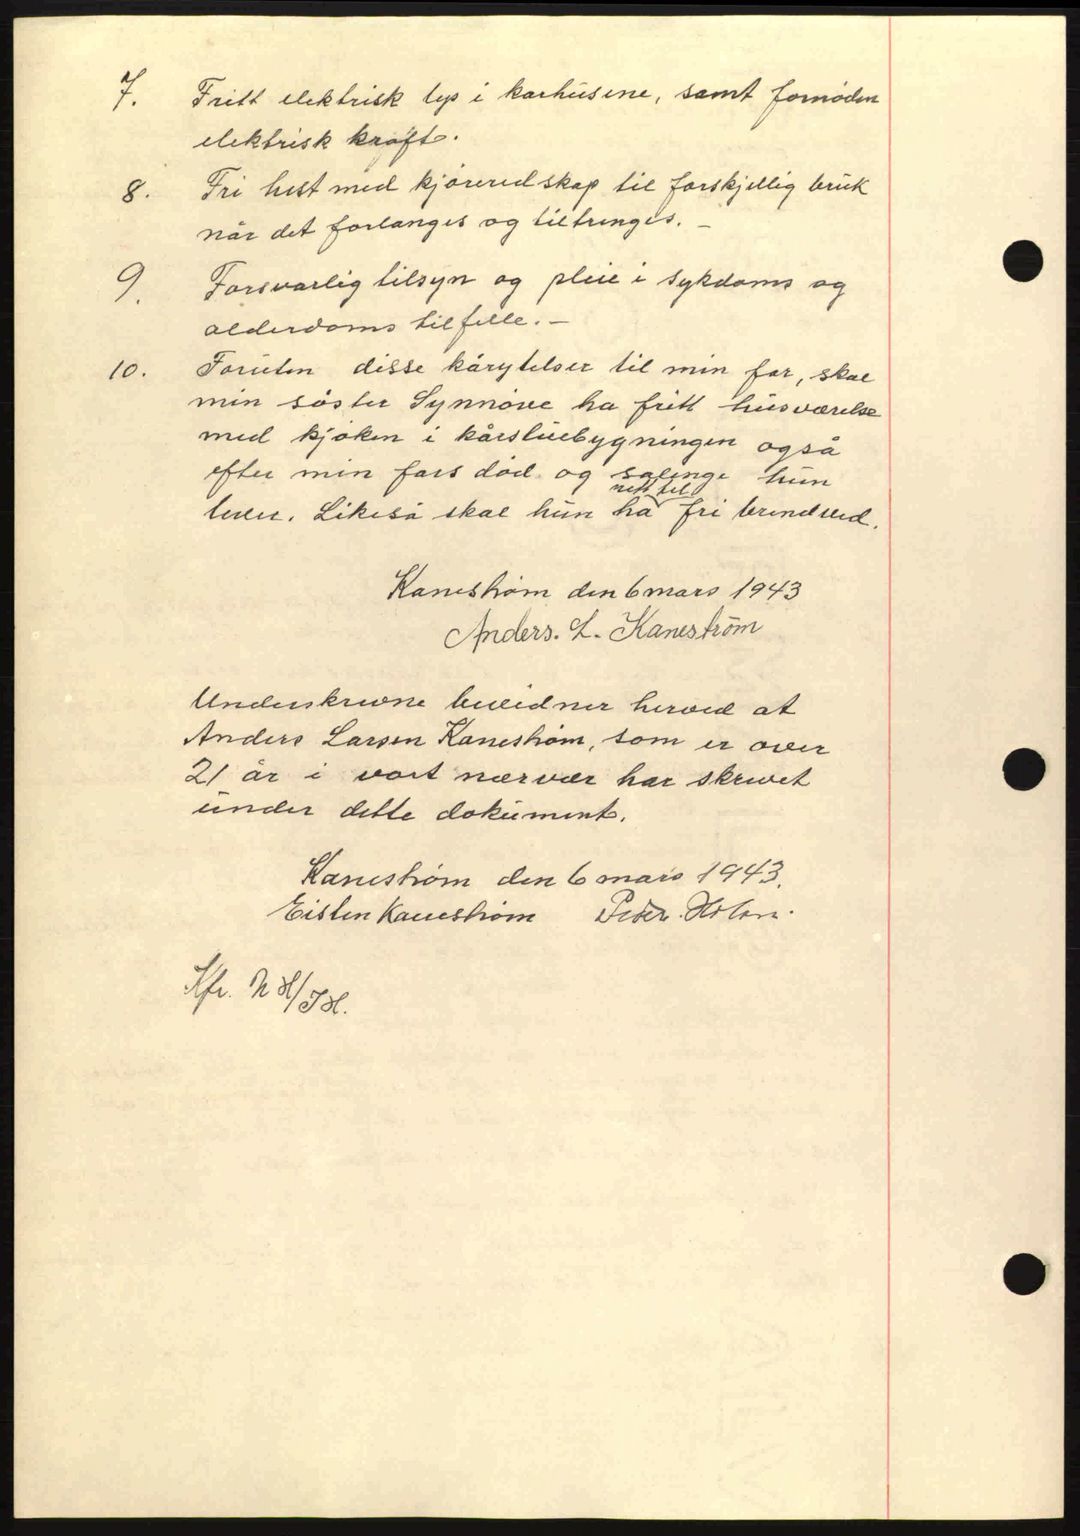 7. Fritt elektrisk lys i karhusene, samt fornöden
elektrisk kraft.
8. Fri hest med kjöreredskap til forskjellig bruk
når det forlanges og tiltrenges. –
9. Forsvarlig tilsyn og pleie i sykdoms og
alderdoms tilfelle. –
10. Foruten disse kårytelser til min far, skal
min söster Synnöve ha fritt husværelse
med kjöken i kårstuebygningen også
efter min fars död og sålenge hun
rett til
lever. Likeså skal hun ha fri brendved.
Kaneström den 6 mars 1943
Anders. L. Kaneström
Underskrevne bevidner herved at
Anders Larsen Kaneström, som er over
21 år i vort nærvær har skrevet
under dette dokument.
Kaneström den 6 mars 1943.
Eisten Kaneström Peder. Holen.
Kfr. N H/JH.